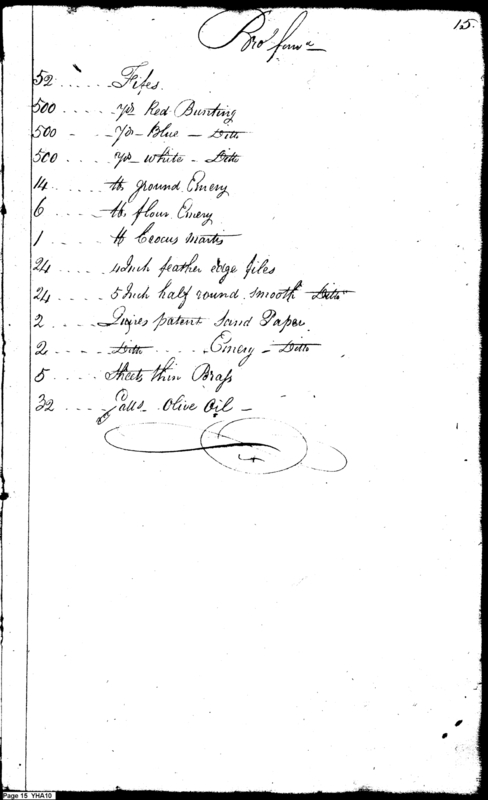 15.
Bro.t forw.d
52 ..... Fifes.
500 .... yds Red Bunting
500 - - yds - Blue - Ditto
500 .... yds - white - Ditto
14 .... lb ground Emery
6 .... lb flour Emery
1 .... lb Crocus Martis
24 .... 4 Inch feather edge files
24 .... 5 Inch half round smooth Ditto
2 .... Quires patent Sand Paper
2 .... Ditto ..... Emery - Ditto
5 .... Sheets thin Brass
32 .... Galls - Olive Oil -
Page 15 YHA10